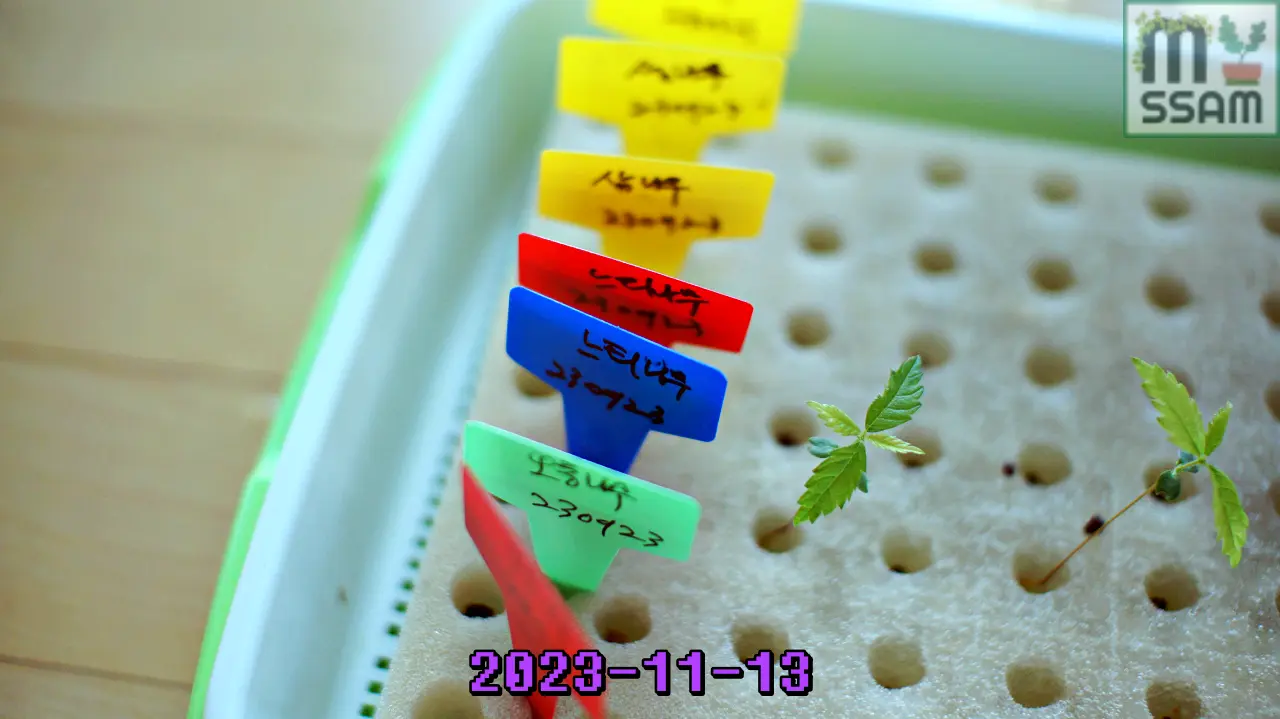 M
SSAM
삼나무
230923
삼나무
230923
느티나무
230923
느티나무
230923
오동나무
230923
2023-11-13